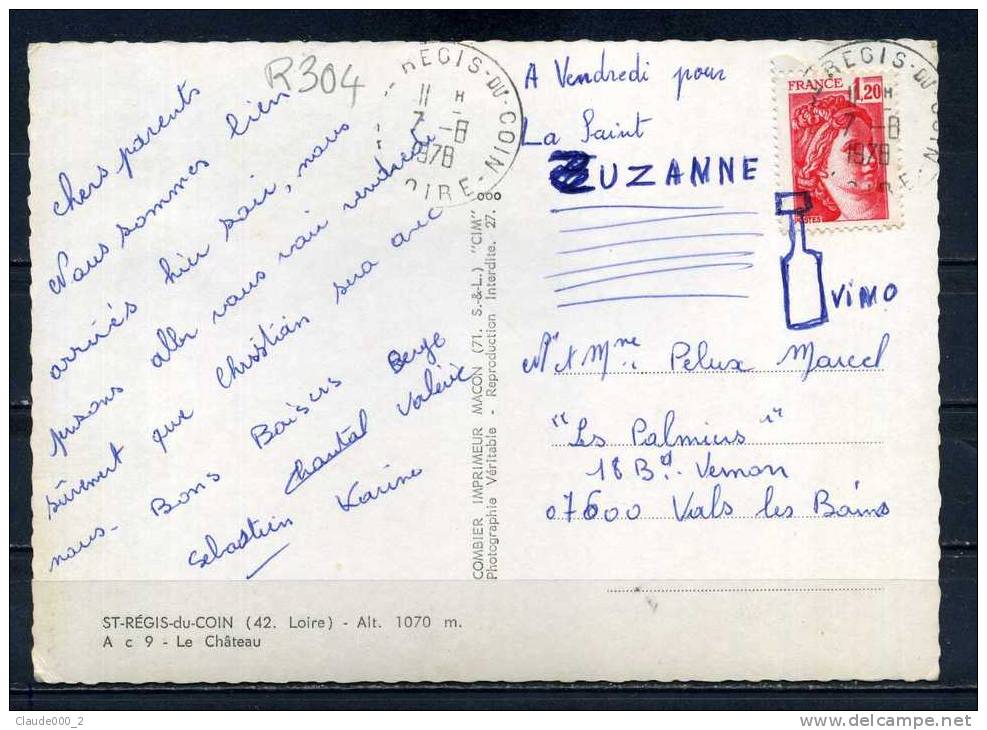 R304
chers parents
Nous sommes bien
arrivés hier soir, nous
pensons aller vous voir vendredi
sûrement que Christian sera avec
nous - Bons Baisers Serge
Chantal Valérie
Sebastien Karine
ST-RÉGIS-du-COIN (42. Loire) - Alt. 1070 m.
A c 9 - Le Château
COMBIER IMPRIMEUR MACON (71. S.-&-L.) "CIM"
Photographie Véritable - Reproduction Interdite. 27.
REGIS-DU-COIN
11 H
7 -8
1978
OIRE
A Vendredi pour
La Saint
ZUZANNE
FRANCE 1,20
POSTES
REGIS-DU-COIN
11 H
7 -8
1978
OIRE
VINO
Mr et Mme Pelux Marcel
"Les Palmiers"
18 Bd. Vernon
07600 Vals les Bains
Claude000_2
www.delcampe.net